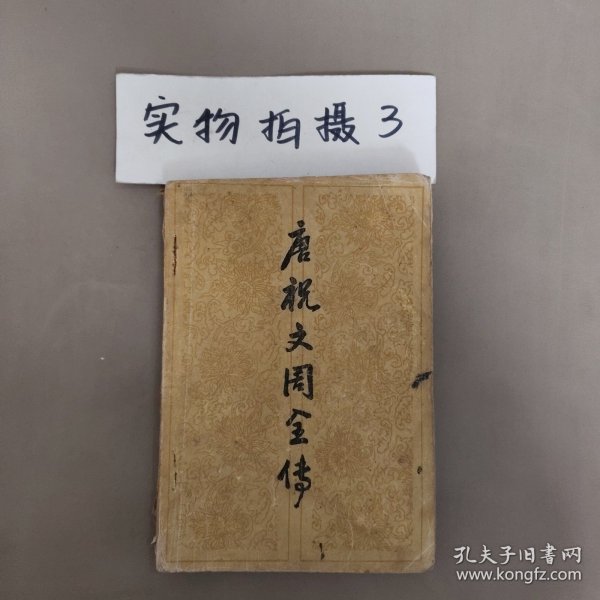 实物拍摄3
唐祝文周全傳
孔夫子旧書网
www.kongfz.com